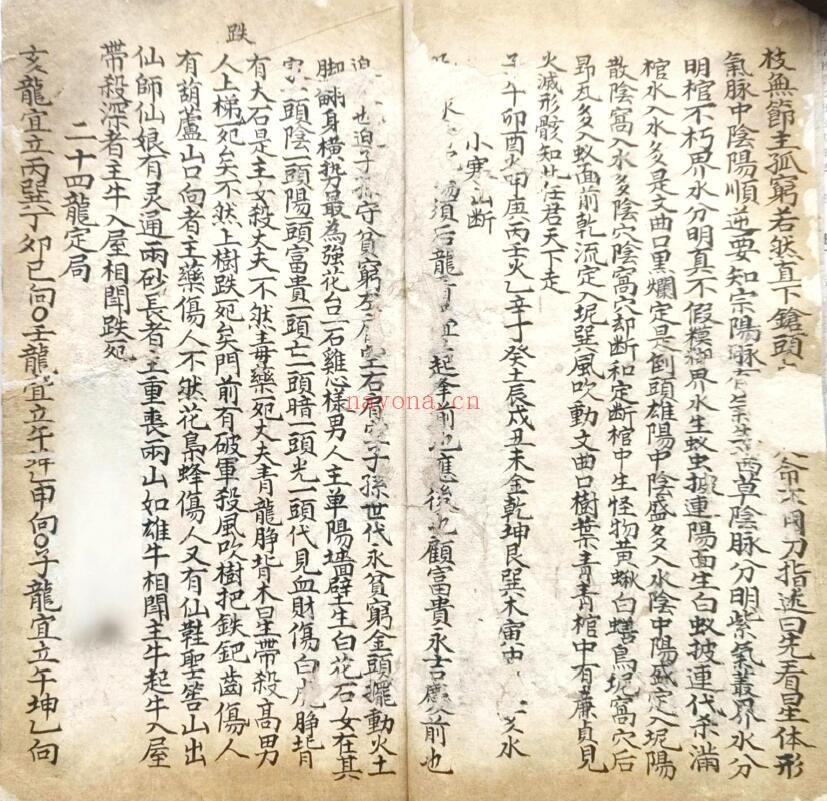 枝無節主孤窮若然直下鎗頭
命不用刀指迷曰先看星体形
氣脉中陰陽順逆要知宗陽脉有
茜草陰脉分明紫氣叢界水分
明棺不朽界水分明真不假糢糊界水生蚁虫擬連陽面生白蚁披連代杀滿
棺水入水多是文曲口黑爛定是倒頭雄陽中陰盛多入水陰中陽盛定入坭陽
散陰窩入水多陰穴陰窩穴却断和定断棺中生怪物黃蝋白蟮鳥坭窩穴后
昂瓦多入蚁面前乾流定入坭巽風吹動文曲口樹葉青青棺中有廉貞見
火滅形骸知此任君天下走
午卯酉火甲庚丙壬火乙辛丁癸土辰戍丑未金乾坤艮巽木寅申
亥水
小寒山断
水
湏后龍
起峯前也應後也顧富貴永吉
前也
迫
也迫子孫守貧窮
石有
子孫世代永貧窮金頭擺動火土
脚
身横势最為强花台一石雞心樣男人主单陽墙壁生白花石女在其
頭陰一頭陽一頭富貴一頭亡一頭暗一頭光一頭代見血財傷白虎睁眥
有大石是主女殺丈夫不然毒藥死丈夫青龍睁眥木星帶殺高男
人上梯死矣不然上樹跌死矣門前有破軍殺風吹樹把鉄鈀齒傷人
有葫蘆山口向者主藥傷人不然花梟蜂傷人又有仙鞋聖筶山出
仙師仙娘有灵通兩砂長者主重喪兩山如雄牛相鬪主牛起牛入屋
帶殺深者主牛入屋相鬪跌死
跌
二十四龍定局
亥龍宜立丙巽丁夘巳向〇壬龍宜立午
乙甲向〇子龍宜立午坤乙向
nayona.cn